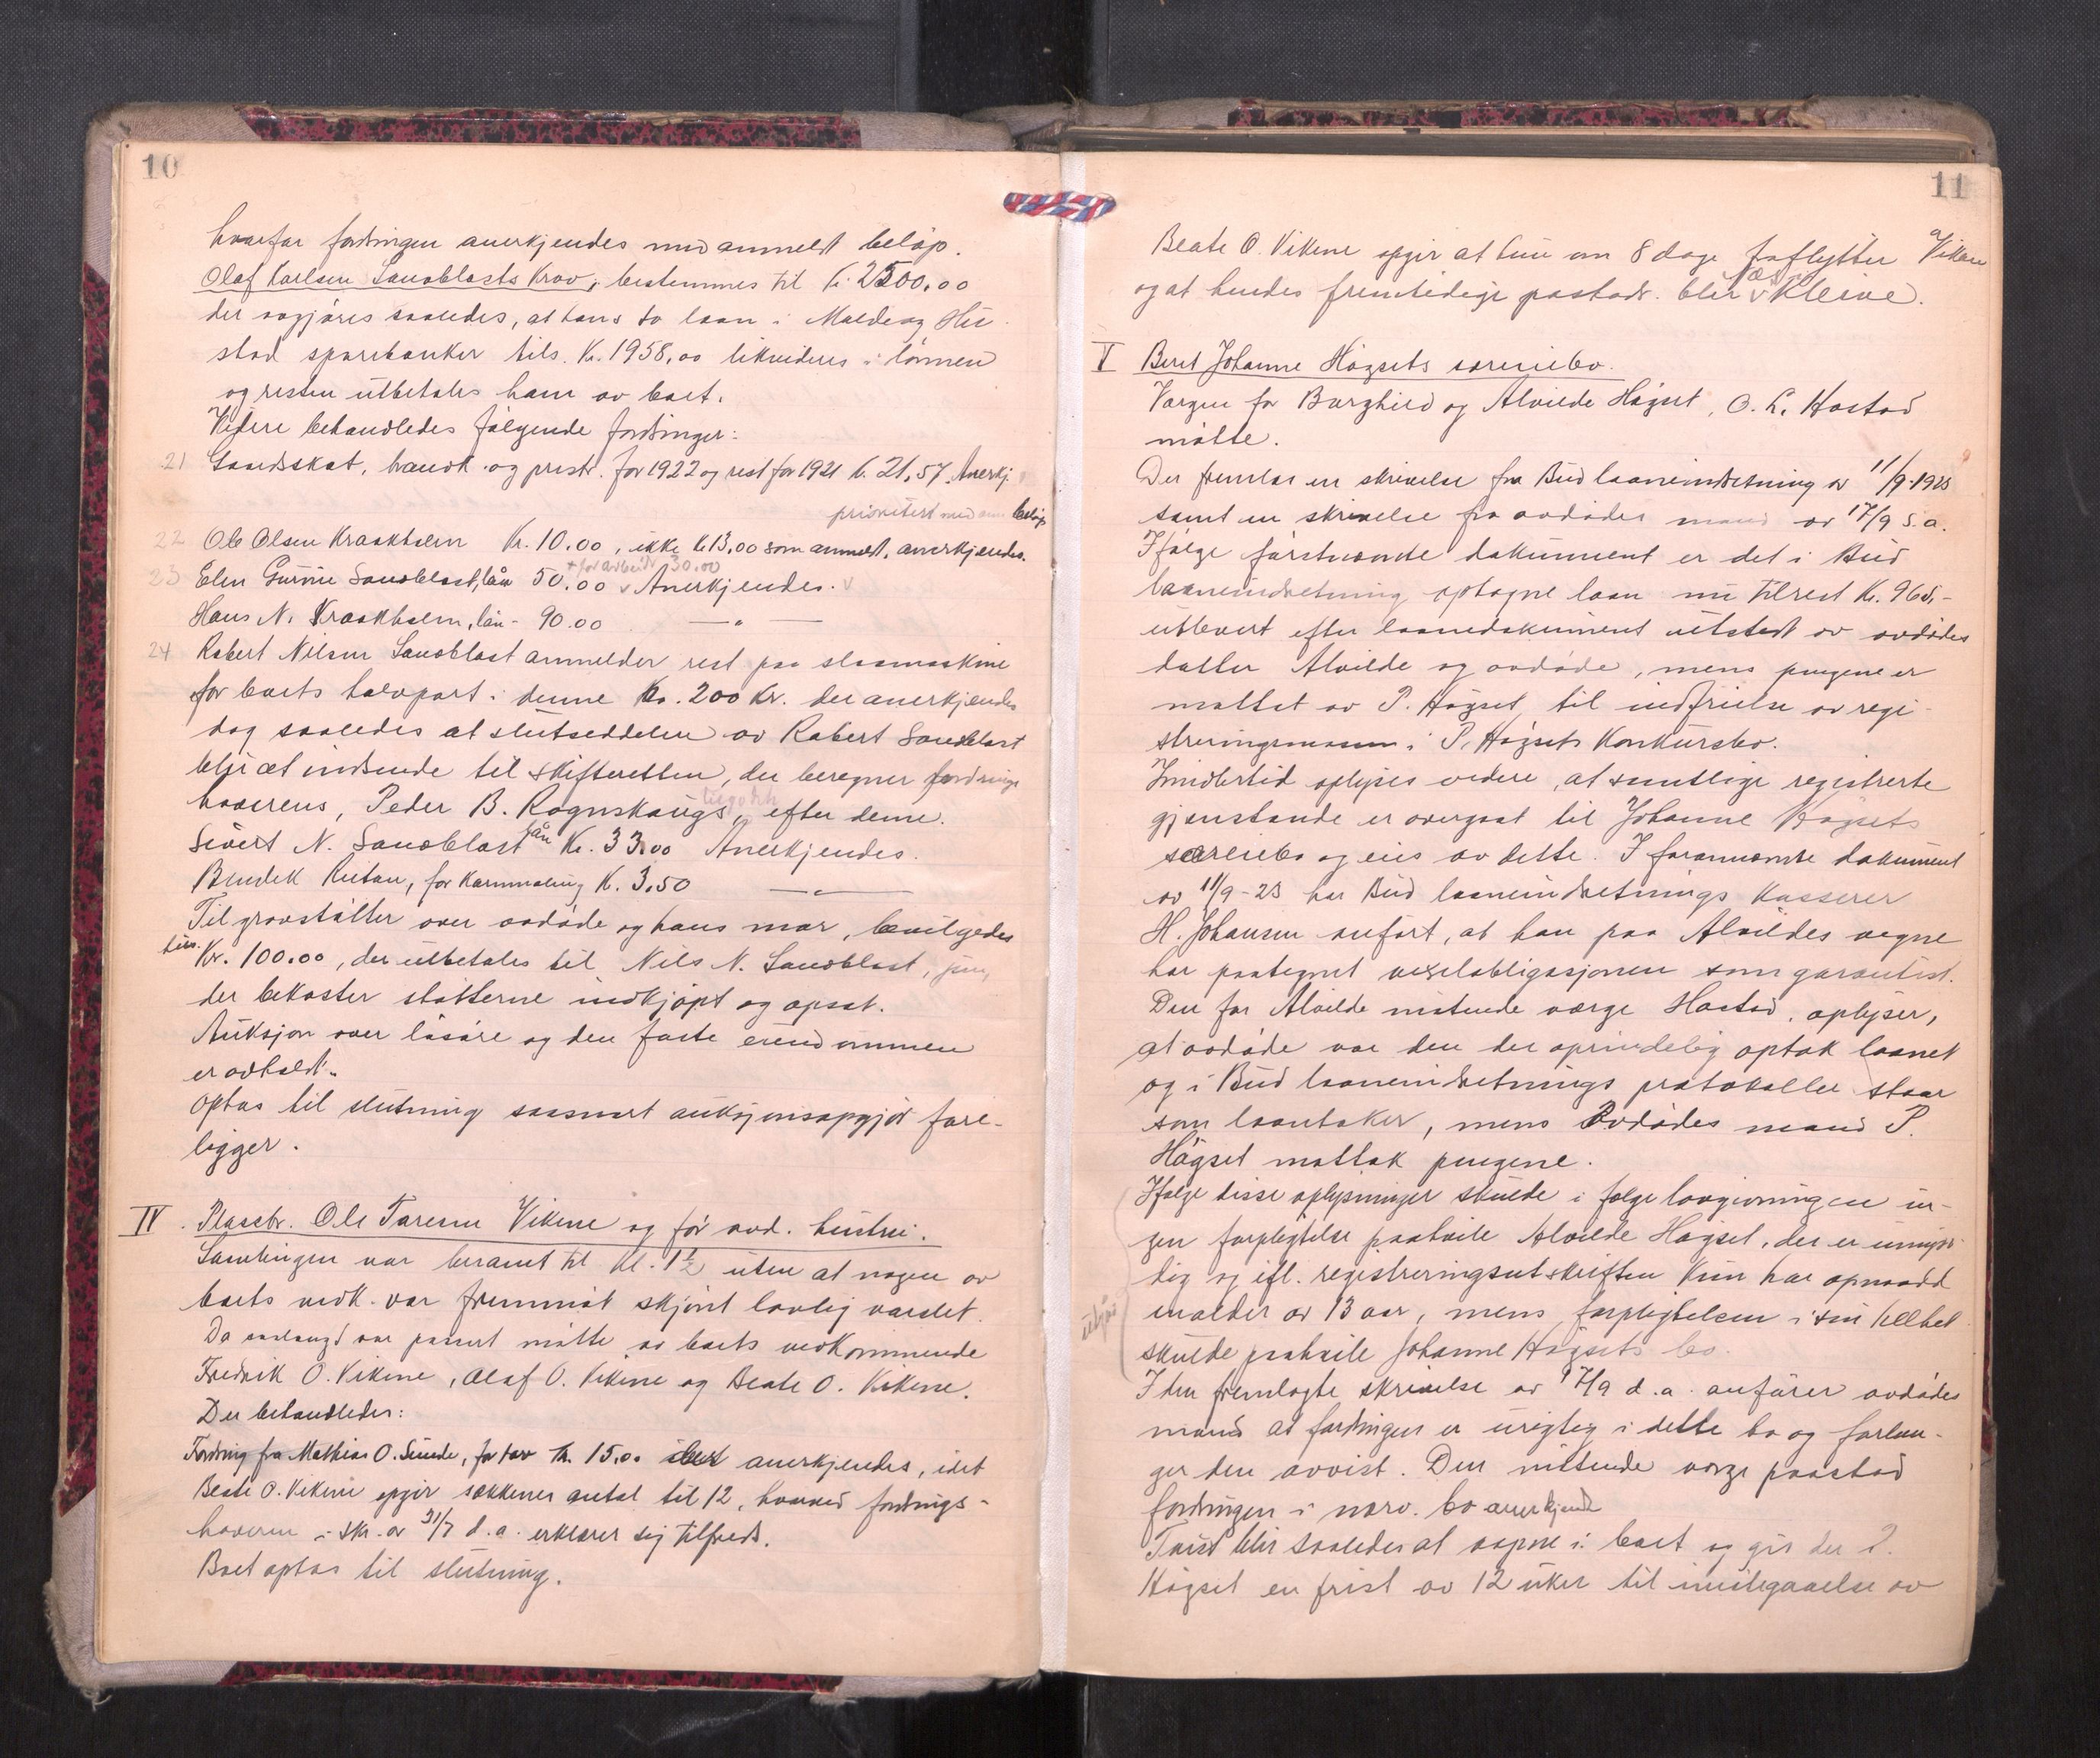 10
hvorfor fordringen anerkjendes med anmeldt beløp.
Olaf Karlsen Sandblasts Krav, bestemmes til kr. 2500.00
der avgjøres saaledes, at hans to laan i Molde og Hu-
stad sparebanker tils. Kr. 1958,00 likvideres i lønnen
og resten utbetales ham av boet.
Videre behandledes følgende fordringer:
21 Landskat, handk. og prestr. for 1922 og rest for 1921 kr. 21,57. Anerkj.
prioritert med anm beløp
22 Ole Olsen Kraakholm Kr. 10.00, ikke kr 13,00 som anmeldt, anerkjendes.
+ for arbeide 30.00
23 Elen Gurine Sandblast, lån 50.00 v Anerkjendes. v
Hans N. Kraakholm, lån - 90.00 — " —
24 Robert Nilsen Sandblast anmelder rest paa slaamaskine
for boets halvpart i denne Kr. 200 Kr. der anerkjendes
dog saaledes at slutseddelen av Robert Sandblast
blir at indsende til skifteretten, der beregner fordrings
haverens, Peder B. Rognskaugs tilgodeh, efter denne.
Sivert N. Sandblast lån Kr. 33.00 Anerkjendes.
Bendik Rietan, for Kornmaling K. 3,50 — " —
Til gravstøtter over avdøde og hans mor, bevilgedes
tils. Kr. 100.00, der utbetales til Nils N. Sandblast, jun,
der bekoster støtterne indkjøpt og opsat.
Auksjon over løsøre og den faste eiendommen
er avholdt.
Optas til slutning saasnart auksjonsopgjør fore-
ligger.
IV. Plassbr. Ole Taresen Vikene og før avd. hustru.
Samlingen var berammet til Kl. 1½ uten at nogen av
boets vedk. var fremmøt skjønt lovlig varslet.
Da saalangt var passert møtte av boets vedkommende
Fredrik O. Vikene, Olaf O. Vikene og Beate O. Vikene.
Der behandledes:
Fordring fra Mathias O. Sunde, for torv kr. 15.00 anerkjendes, idet
Beate O. Vikene opgir sækkenes antal til 12, hvorved fordrings-
haveren i skr. av 31/7 d.a. erklærer sig tilfreds.
Boet optas til slutning.
11
Beate O. Vikene opgir at hun om 8 dage fraflytter Vikene
og at hendes fremtidige postadr. blir v Kleive.
V Beret Johanne Høgsets særeiebo.
Vergen for Borghild og Alvilde Høgset, O. L. Hostad
møtte.
Der fremlas en skrivelse fra Bud laaneindretning av 11/9-1923
samt en skrivelse fra avdødes mand av 17/9 s.a.
Ifølge førstnævnte dokument er det i Bud
laaneindretning optagne laan nu tilrest Kr. 965,-
utlevert efter laanedokument utstedt av avdødes
datter Alvilde og avdøde, mens pengene er
mottat av P. Høgset, til indfrielse av regi-
streringsmassen i P. Høgsets Konkursbo.
Imidlertid oplyses videre, at samtlige registrerte
gjenstande er overgaat til Johanne Høgsets
særeiebo og eies av dette. I forannævnte dokument
av 11/9-23 har Bud laaneindretnings kasserer
H. Johansen anført, at han paa Alvildes vegne
har paategnet vexelobligasjonen som garantist.
Den for Alvilde møtende værge Hostad, oplyser,
at avdøde var den der oprindelig optok laanet
og i Bud laaneindretnings protokoller staar
som laantaker, mens Avdødes mand P.
Høgset mottok pengene.
Ifølge disse oplysninger skulde i følge lovgivningen in-
gen forpligtelse paahvile Alvilde Høgset, der er umyn-
dig og ifl. registreringsutskriften kun har opnaadd
en alder av 13 aar, mens forpligtelsen i sin helhet
skulde paahvile Johanne Høgsets bo.
I den fremlagte skrivelse av 17/9 d.a. anfører avdødes
mand at fordringen er urigtig i dette bo og forlan-
ger den avvist. Den møtende værge paastod
fordringen i nærv. bo anerkjendt
Tvist blir saaledes at aapne i boet og gis der P.
Høgset en frist av 12 uker til imøtegaaelse av